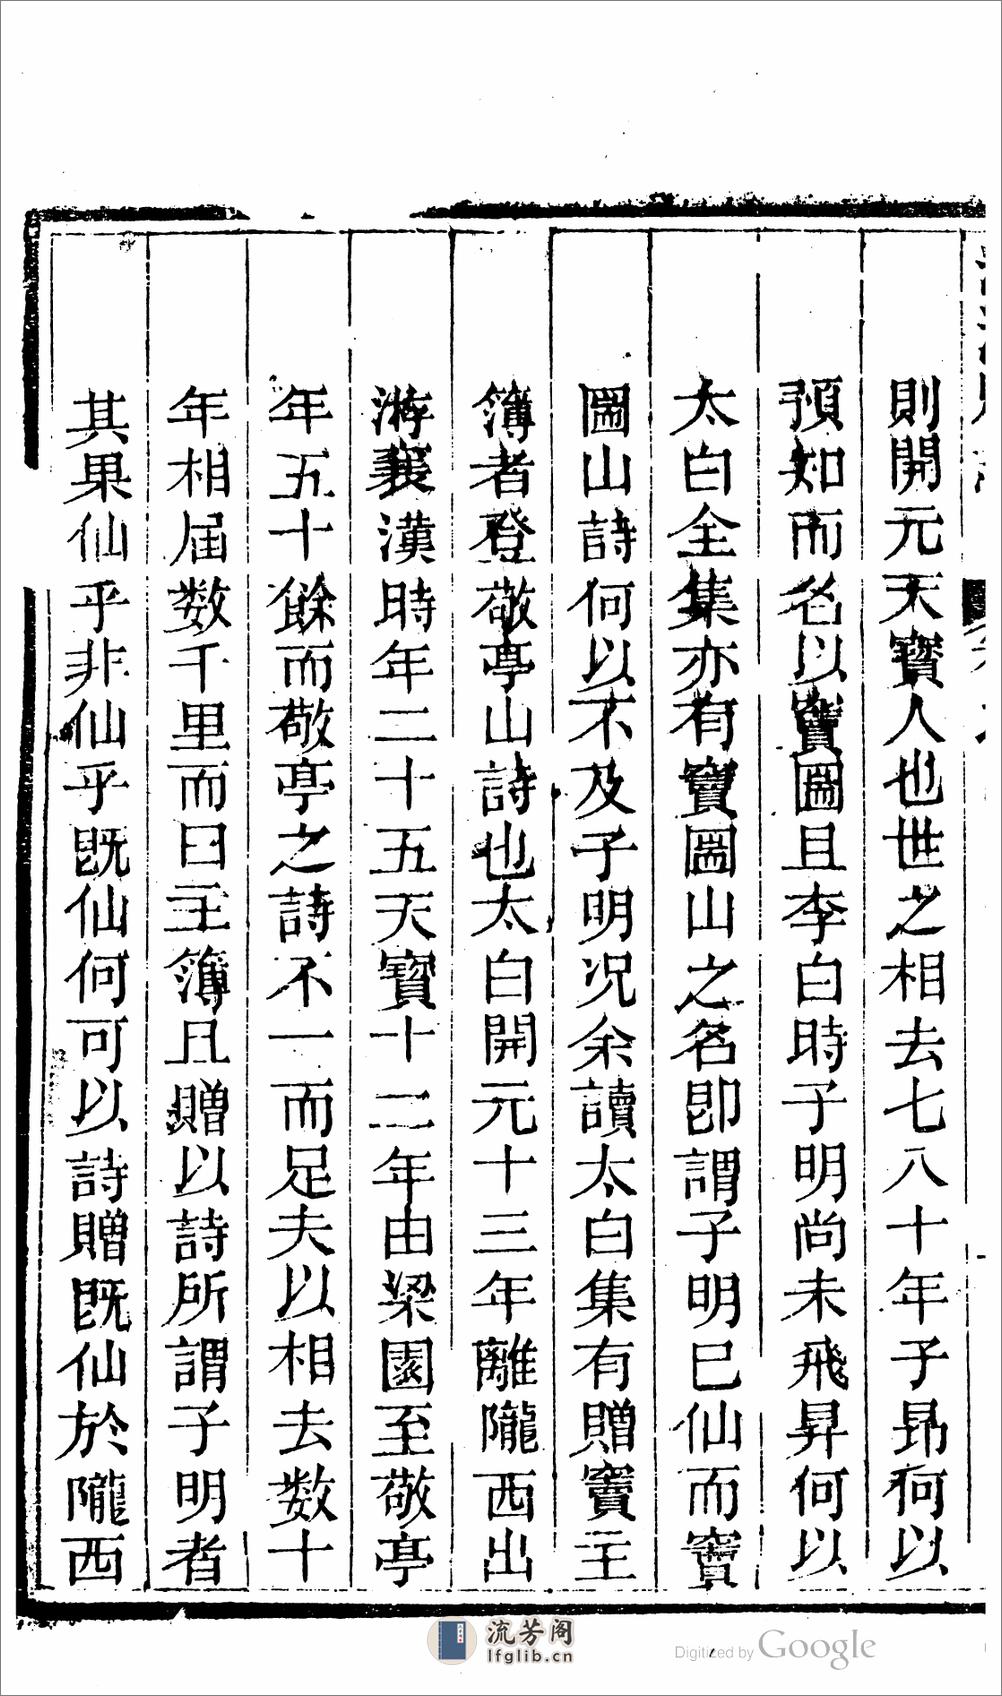 則開元天寳人也世之相去七八十年子昻何以
預知而名以竇圌且李白時子明尚未飛昇何以
太白全集亦有竇圌山之名卽謂子明已仙而竇
圌山詩何以不及子明况余讀太白集有贈竇主
簿者登敬亭山詩也太白開元十三年離隴西出
游襄漢時年二十五天寳十二年由梁園至敬亭
年五十餘而敬亭之詩不一而足夫以相去数十
年相届数千里而曰主簿且贈以詩所謂子明者
其果仙乎非仙乎旣仙何可以詩贈旣仙於隴西
流芳阁
lfglib.cn
Digitized by Google